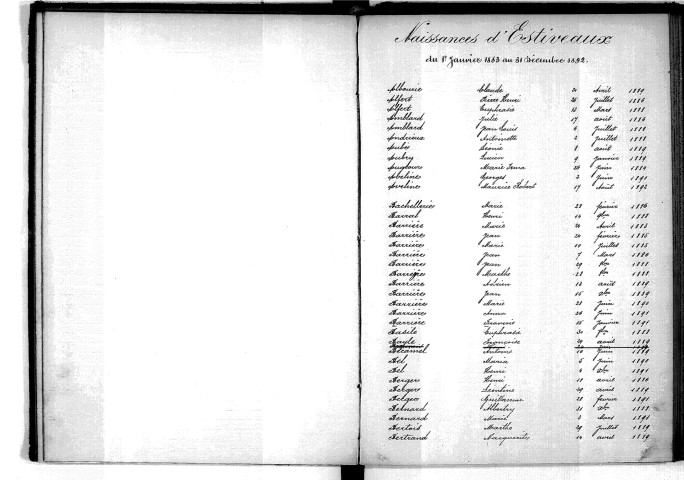 Naissances d'Estiveaux
du 1er Janvier 1883 au 31 Décembre 1892.
Albourie Claude Avril 1889
Alfert Pierre Henri 28 Juillet 1886
Alfert Euphrasie 15 Mars 1888
Amblard Julie 17 août 1886
Amblard Jean Louis 6 Juillet 1888
Andrieux Antoinette 2 Juillet 1888
Aubès Léonie 8 août 1889
Aubry Lucien 9 Janvier 1889
Marie Irma 24 Juin 1889
Aveline Georges 2 Juin 1891
Aveline Maurice Robert 17 Août 1892
Bachellerie Marie 23 février 1886
Barral Henri 14 1888
Barrière Marie Avril 1885
Barrière Jean 24 février 1885
Barrière Marie 10 Juillet 1885
Barrière Jean 7 Mars 1886
Barrière Jean 29 1888
Barrière Marthe 22 1888
Barrière Adrien 12 août 1889
Barrière Jean 15 1889
Barrière Marie 23 Juin 1890
Barrière Anna 26 Juin 1891
Barrière François 15 Janvier 1891
Basile Euphrasie 30 1888
Bayle Françoise 20 août 1889
Bécamel Antoine 10 Juin 1889
Bel Maria 5 Juin 1890
Bel Henri 4 1891
Berger Henri 11 avril 1886
Berger Léontine 29 avril 1889
Berger Guillaume 28 février 1891
Bernard 21 1888
Bernard Marie 2 Mars 1891
Bertois Marthe 29 Juillet 1889
Bertrand Marguerite 14 avril 1889